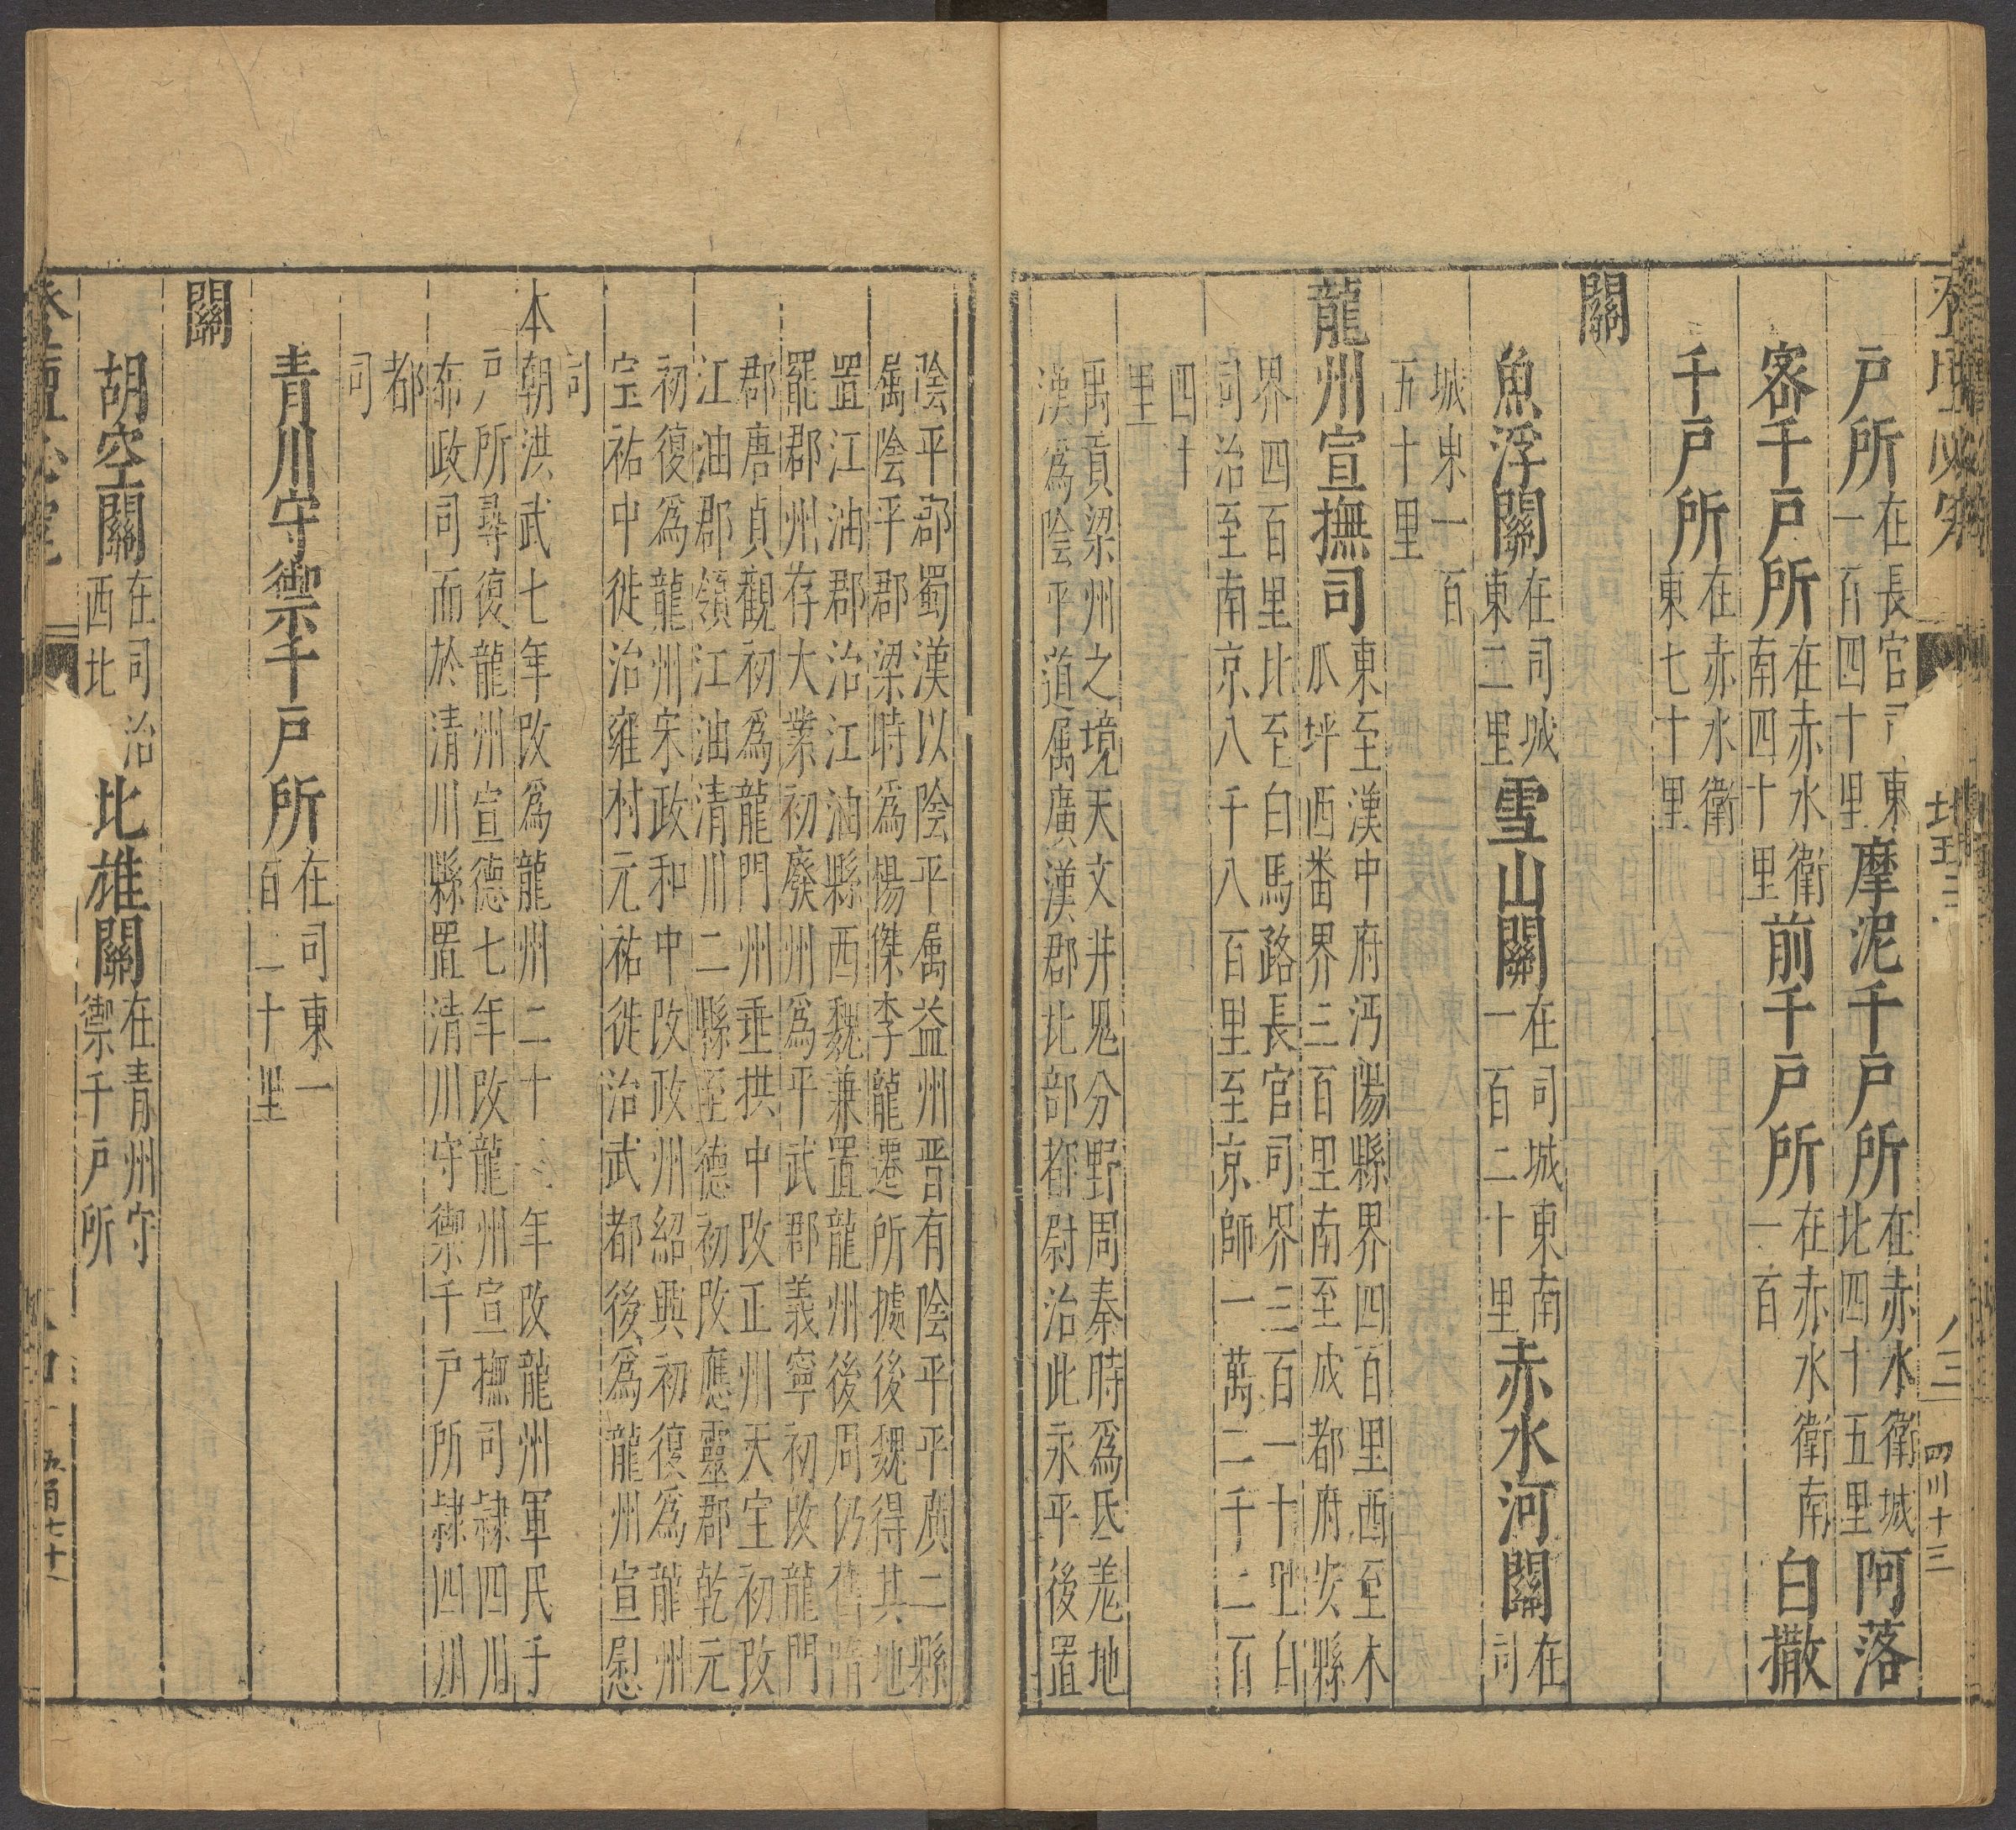 四川十三
戶所在長官司東一百四十里摩泥千戶所在赤水衛城北四十五里阿落
密千戶所在赤水衛南四十里前千戶所在赤水衛南一百白撒
千戶所在赤水衛東七十里
關
魚浮關在司城東二里雪山關在司城東南一百二十里赤水河關在司
城東一百五十里
龍州宣撫司東至漢中府沔陽縣界四百里西至木瓜坪西畨界三百里南至成都府安縣
界四百里北至白馬路長官司界三百一十里自司治至南京八千八百里至京師一萬二千二百
四十里
禹貢梁州之境天文井鬼分野周秦時爲氐羌地
漢爲陰平道属廣漢郡北部都尉治此永平後置
陰平郡蜀漢以陰平属益州晋有陰平平廣二縣
属陰平郡梁時爲楊傑李龍遷所據後魏得其地
置江油郡治江油縣西魏兼置龍州後周仍舊隋
罷郡州存大業初廢州爲平武郡義寧初改龍門
郡唐貞觀初爲龍門州垂拱中改正州天宝初改
江油郡領江油清川二縣至德初改應靈郡乾元
初復爲龍州宋政和中改政州紹興初復爲龍州
宝祐中徙治雍村元祐徙治武都後爲龍州宣慰
司
本朝洪武七年改爲龍州二十年改龍州軍民千
戶所尋復龍州宣德七年改龍州宣撫司隷四川
布政司而於清川縣置清川守禦千戶所隷四川
都
司
青川守禦千戶所在司東一百二十里
關
胡空關在司治西北北雄關在青州守禦千戶所
五百七十一